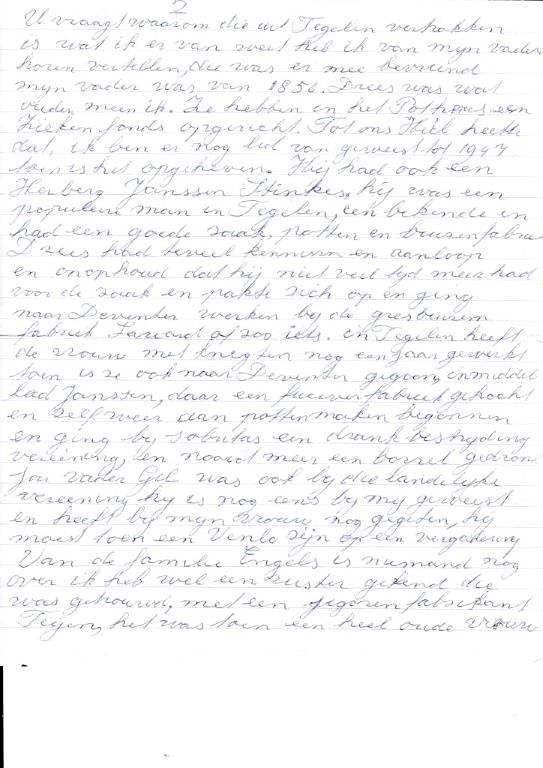 2
U vraagt waarom die uit Tegelen vertrokken
is wat ik er van weet heb ik van mijn vader
horen vertellen, die was er mee bevriend
mijn vader was van 1856. Drees was wat
ouder meen ik. Ze hebben in het Pothuis een
Zieken fonds opgericht. Tot ons Heil heette
dat, ik ben er nog lid van geweest tot 1947
toen is het opgeheven. Hij had ook een
Herberg Janssen Stinkes, hij was een
populaire man in Tegelen, een bekende en
had een goede zaak, potten en buizenfabriek
Drees had teveel kennissen en aanloop
en onophoud dat hij niet veel tijd meer had
voor de zaak en pakte zich op en ging
naar Deventer werken bij de gresbuizen
fabriek of zoo iets. in Tegelen heeft
de vrouw met knegten nog een jaar gewerkt
toen is ze ook naar Deventer gegaan, inmiddel
had Janssen, daar een fabriek gekocht
en zelf weer aan potten maken begonnen
en ging bij Sobrietas een drank bestrijding
vereeniging, en nooit meer een borrel gedron
Jac van der Gel was ook bij die landelijke
vereeniging hij is nog eens bij mij geweest
en heeft bij mijn vrouw nog gegeten, hij
moest toen een Venlo zijn op een vergadering
Van de familie Engels is niemand nog
over ik heb wel een zuster gekend die
was getrouwd, met een sigaren fabrikant
Teijen, het was toen een heel oude vrouw